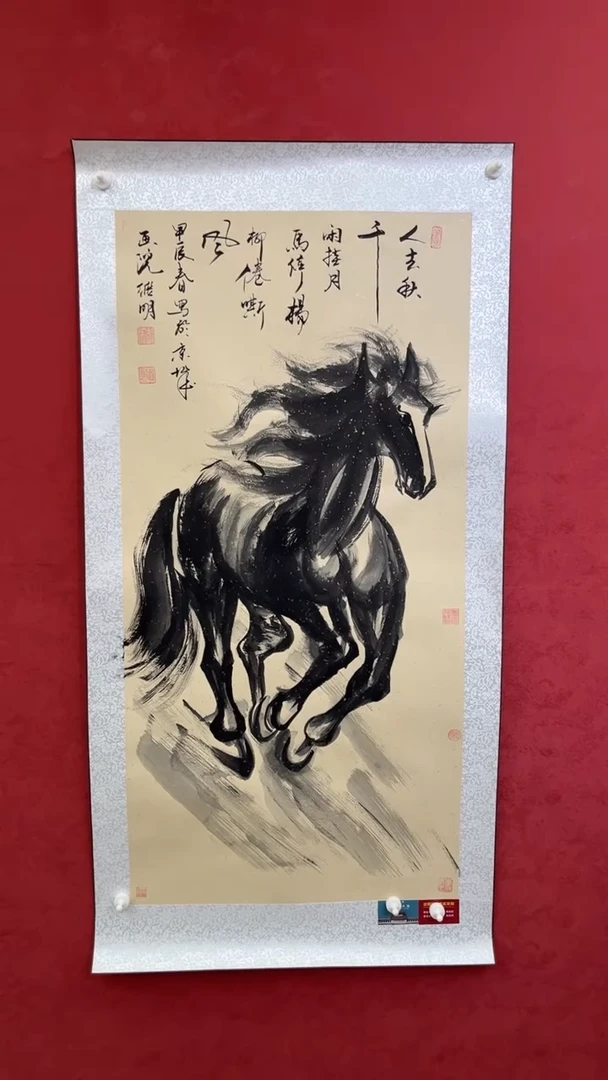 人去秋
千
闲挂月
馬停楊
柳倦嘶
风
甲辰春写於京城
画院继明